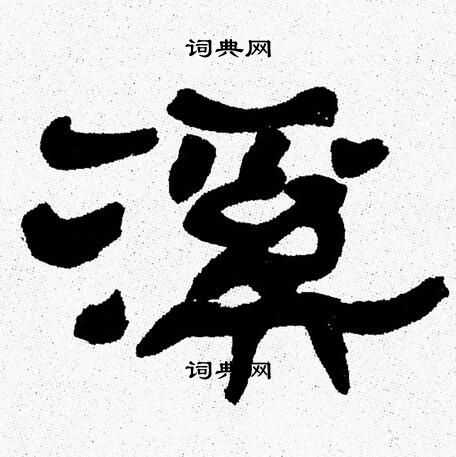 词典网
溪
词典网